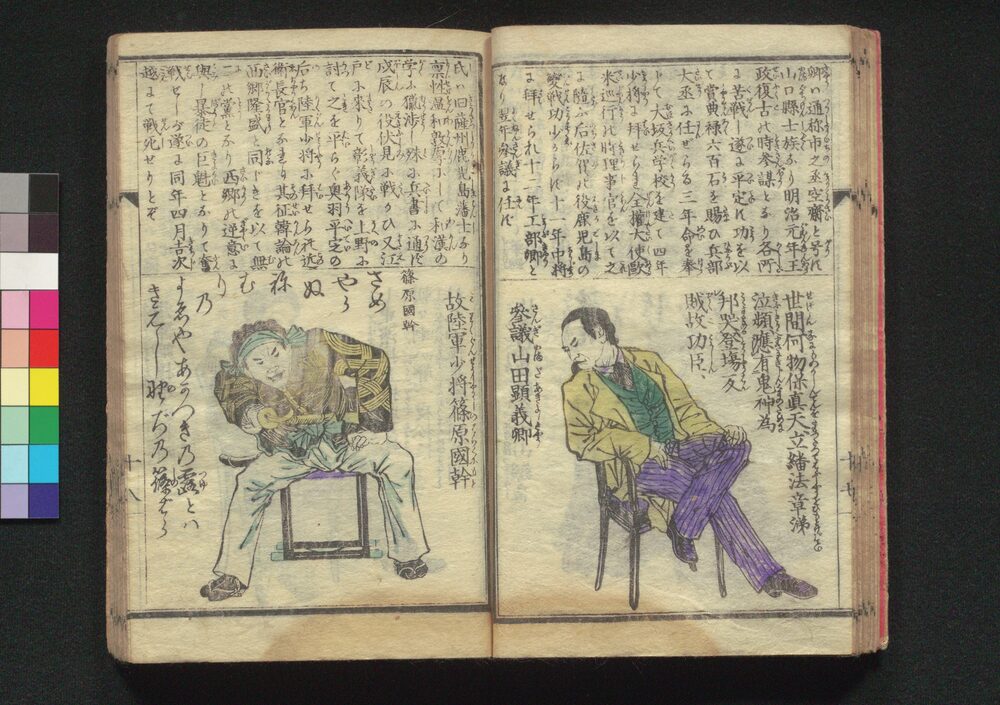 卿ハ通称市之丞空齋と号ス
山口縣士族なり明治元年王
政復古の時参謀となり各所
に苦戦し遂に平定の功を以
て賞典禄六百石を賜ひ兵部
大丞に任せらる三年命を奉
して大坂兵学校を建て四年
少将に拝せらる全権大使歐
米巡行の時理事官を以て之
に随ふ后佐賀の役鹿児島の
変戦功少からす十一年中将
に拝せられ十二年工部卿と
なり翌年参議に任す
世間何物保真天立繙法章涕
泣頻應有鬼神為
邦哭登場多
賊故功臣
参議山田顕義卿
氏ハ旧薩州鹿児島藩士なり
稟性温和敦篤にして和漢の
学に獵渉し殊に兵書に通ず
戊辰の役伏見に戦かひ又江
戸に来りて彰義隊を上野に
討て之を平らぐ奥羽平定の
后ち陸軍少将に拝せられ近
衛長官となる其征韓論の
西郷隆盛と同じきを以て無
二の黨となり西郷の逆意に
與し暴徒の巨魁となりて奮
戦せしが遂に同年四月吉次
越にて戦死せりとぞ
故陸軍少将篠原國幹
篠原國幹
さめ
やら
ぬ
む
り
乃
きえし野ぢ乃篠ばら